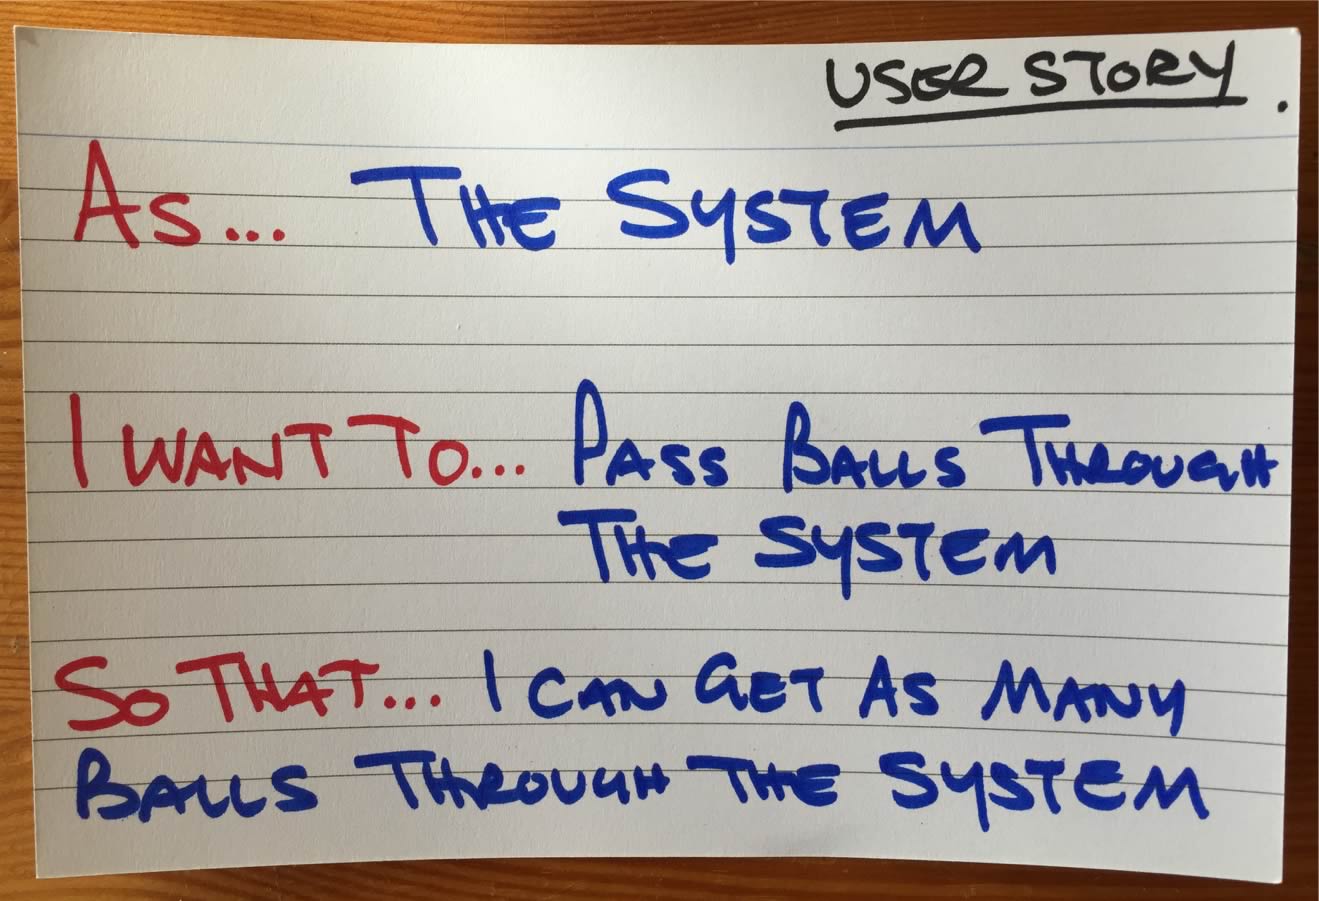 USER STORY.
As... THE SYSTEM
I WANT TO... PASS BALLS THROUGH
THE SYSTEM
SO THAT... I CAN GET AS MANY
BALLS THROUGH THE SYSTEM